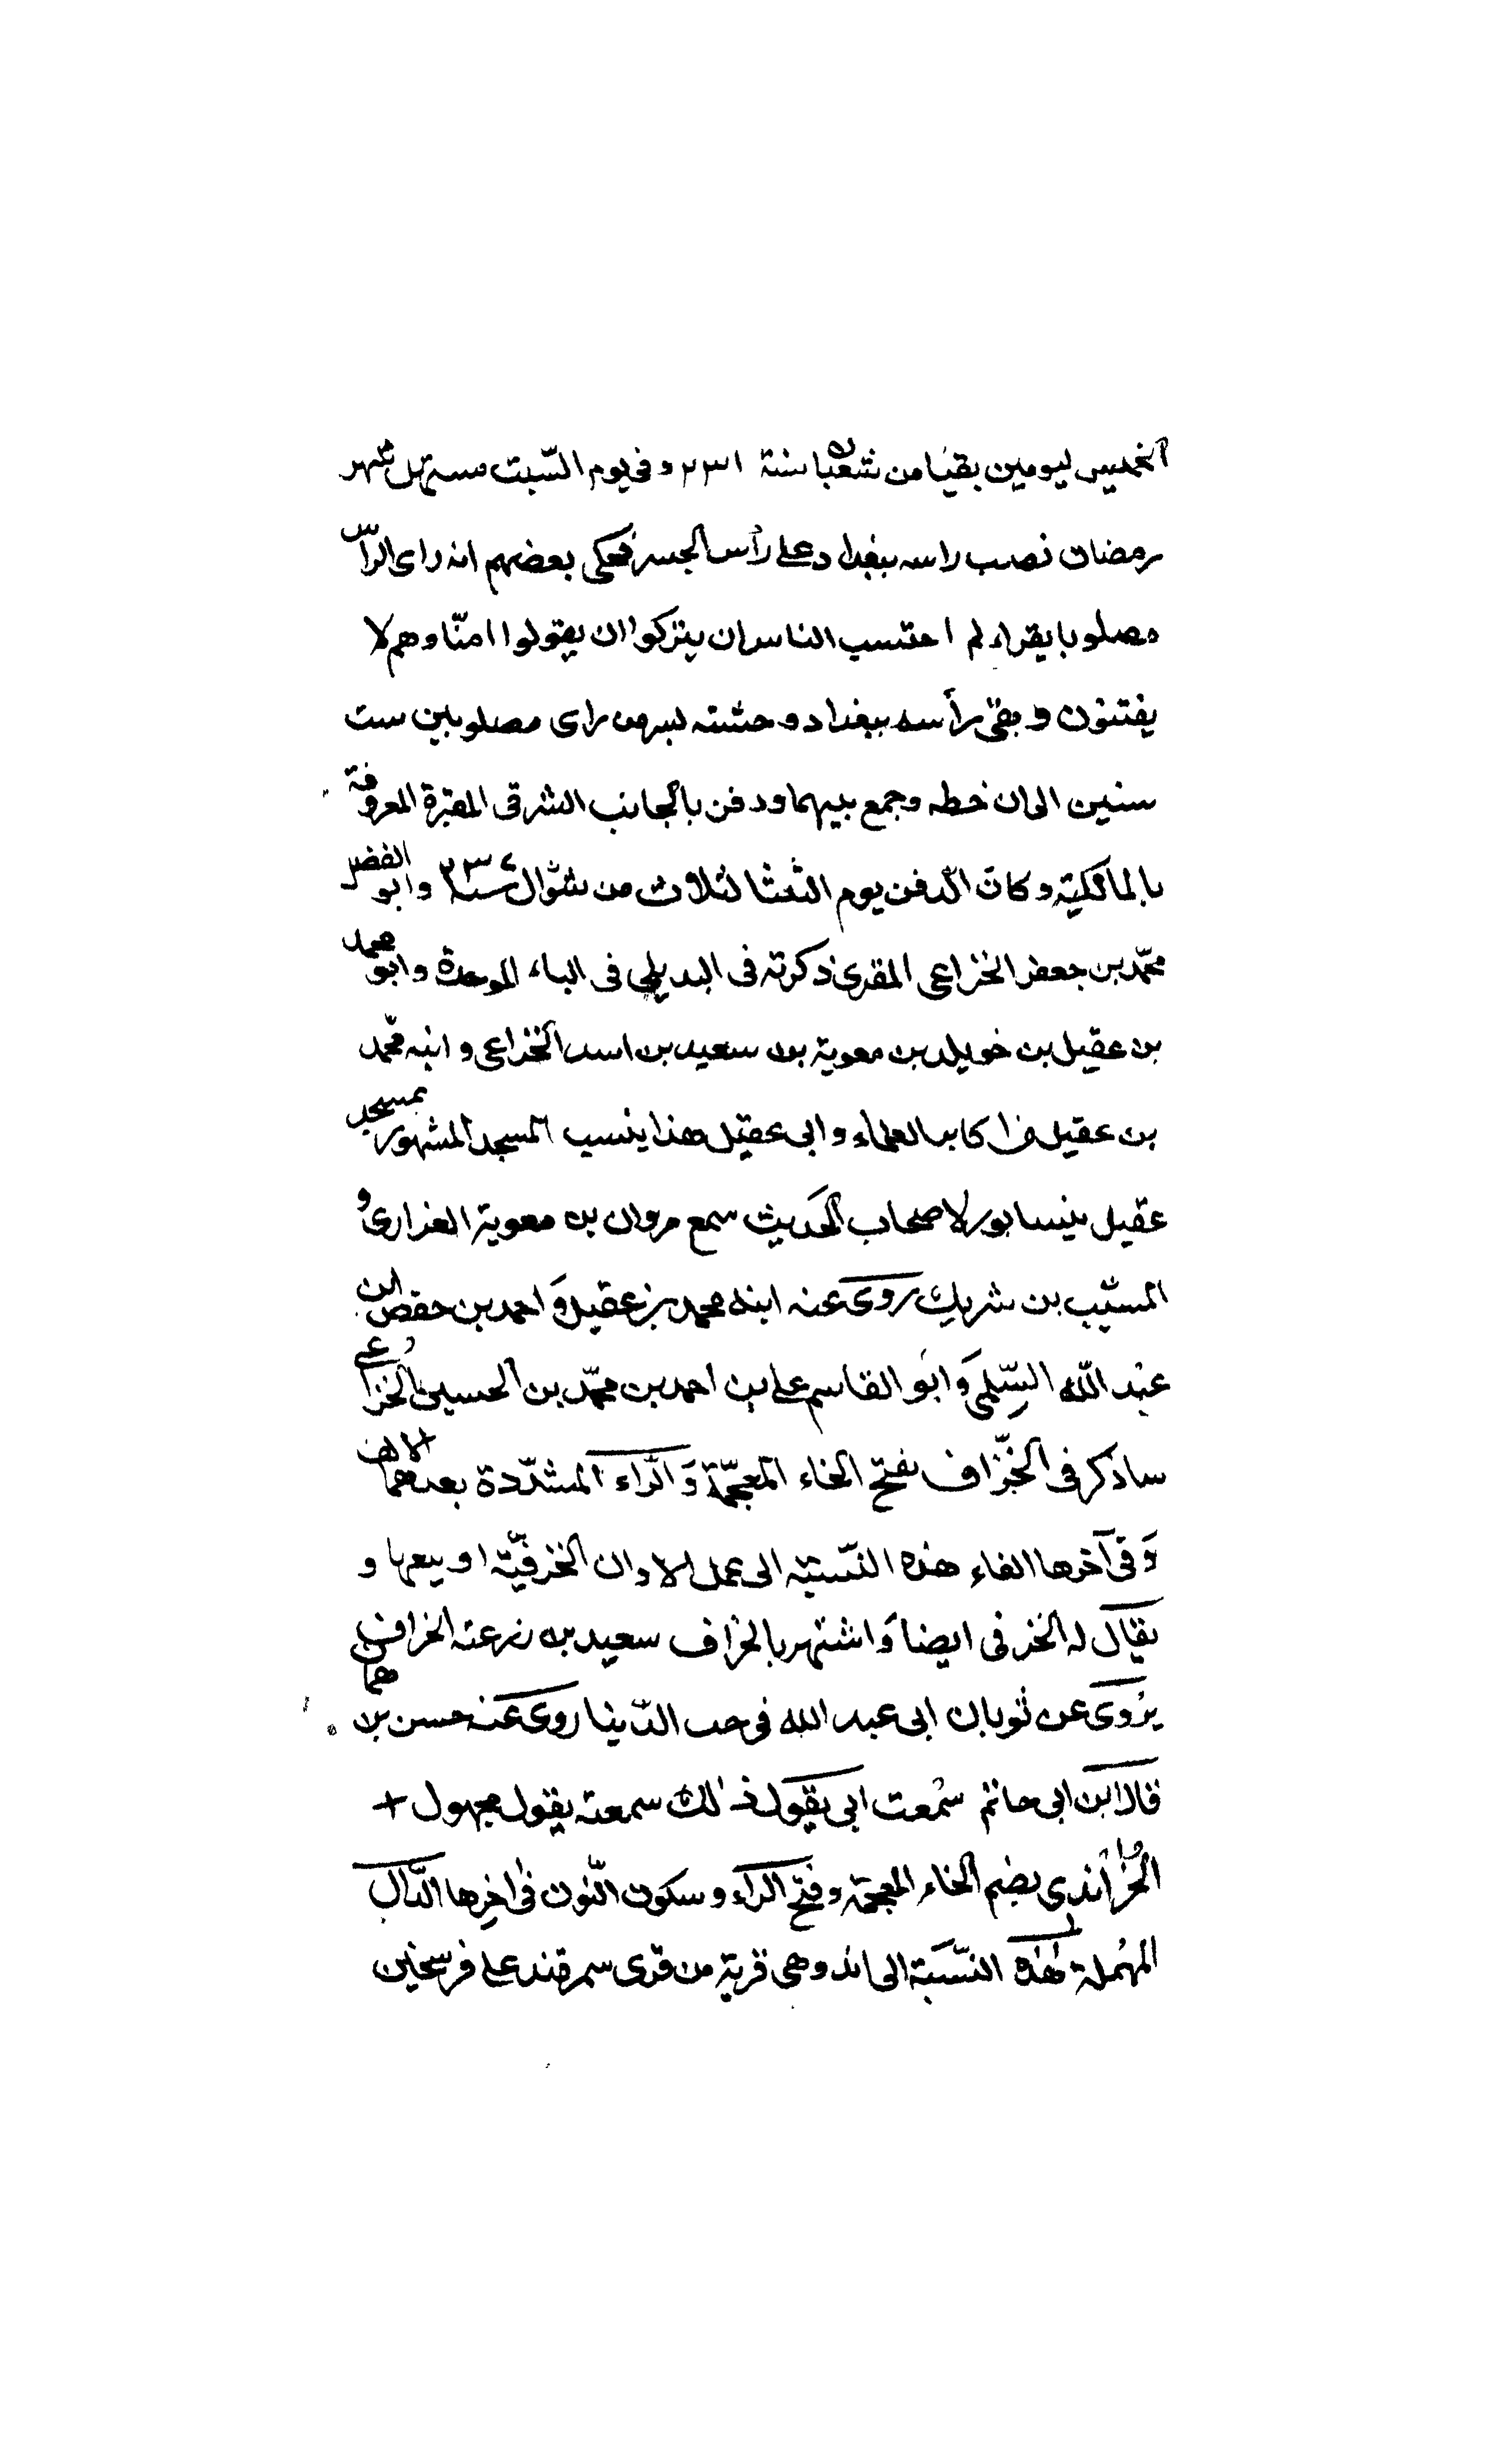 الخميس ليومين بقيا من شعبان سنة ٢٣١ وفي يوم السّبت مستهل شهر
رمضان نصب راسه ببغداد على رأس الجسر فحكى بعضهم انه راى الراس
مصلوبا يقراء لم احتسب الناس ان يتركوا ان يقولوا امنّا وهم لا
يفتنون و بقى رأسه ببغداد وجثته بسر من راى مصلوبين ست
سنين الى ان خطه وجمع بينهما ودفن بالجانب الشرقى المقبرة المعروفة
بالمالكية وكان الدفن يوم الثلثا لثلاث من شوّال سنة ٢٣٧ وابو الفضل
محمّد بن جعفر الخزاعى المقرى ذكرته فى البديلى فى الباء الموحدة وابو محمد
بن عقيل بن خويلد بن معوية بن سعيد بن اسد الخزاعى و ابنه محّمد
بن عقيل من اكابر العلماء و ابى عقيل هذا ينسب المسجد المشهور بمسجد
عقيل بنيسابور لاصحاب الحَديث سمع مروان بن معوية الفزارى و
المسيّب بن شريك روى عنه ابنه محمد بن عقيل وَ احمد بن حفص ابن
عبْد اللّه السّلمى وَ ابوَ القاسم على بن احمد بن محمّد بن الحسين الخُزاعى
ساذكر فى الخَزّاف بفتح الخاء المعجمّة وَ الّراء المشدّدة بعدهما الالف
وَفى آخرها الفاء هذه النّسبة الى عمل الاوان الخزفيّة او بيعها و
يقال له الخزفى ايضا وَاشتهر بالخزاف سعيد بن زرعة الخزاف
يرْوى عن ثوبان ابى عبد الله فى حب الدّينا روى عنه حسن بن همام
قال ابن ابى حاتم سْمعت ابى يقول ذلك سمعته يقول مجهول +
الُخرْاندى بضم الخاء المعجمة وفتح الراء وسكون النّون فى اخرها الدّال
المهْملة هٰذه النسّبَة الى اند وهى قرية من قرى سمرقند على فرسخين